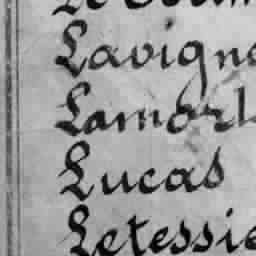 Lavigne
Lamorl
Lucas
Letessie